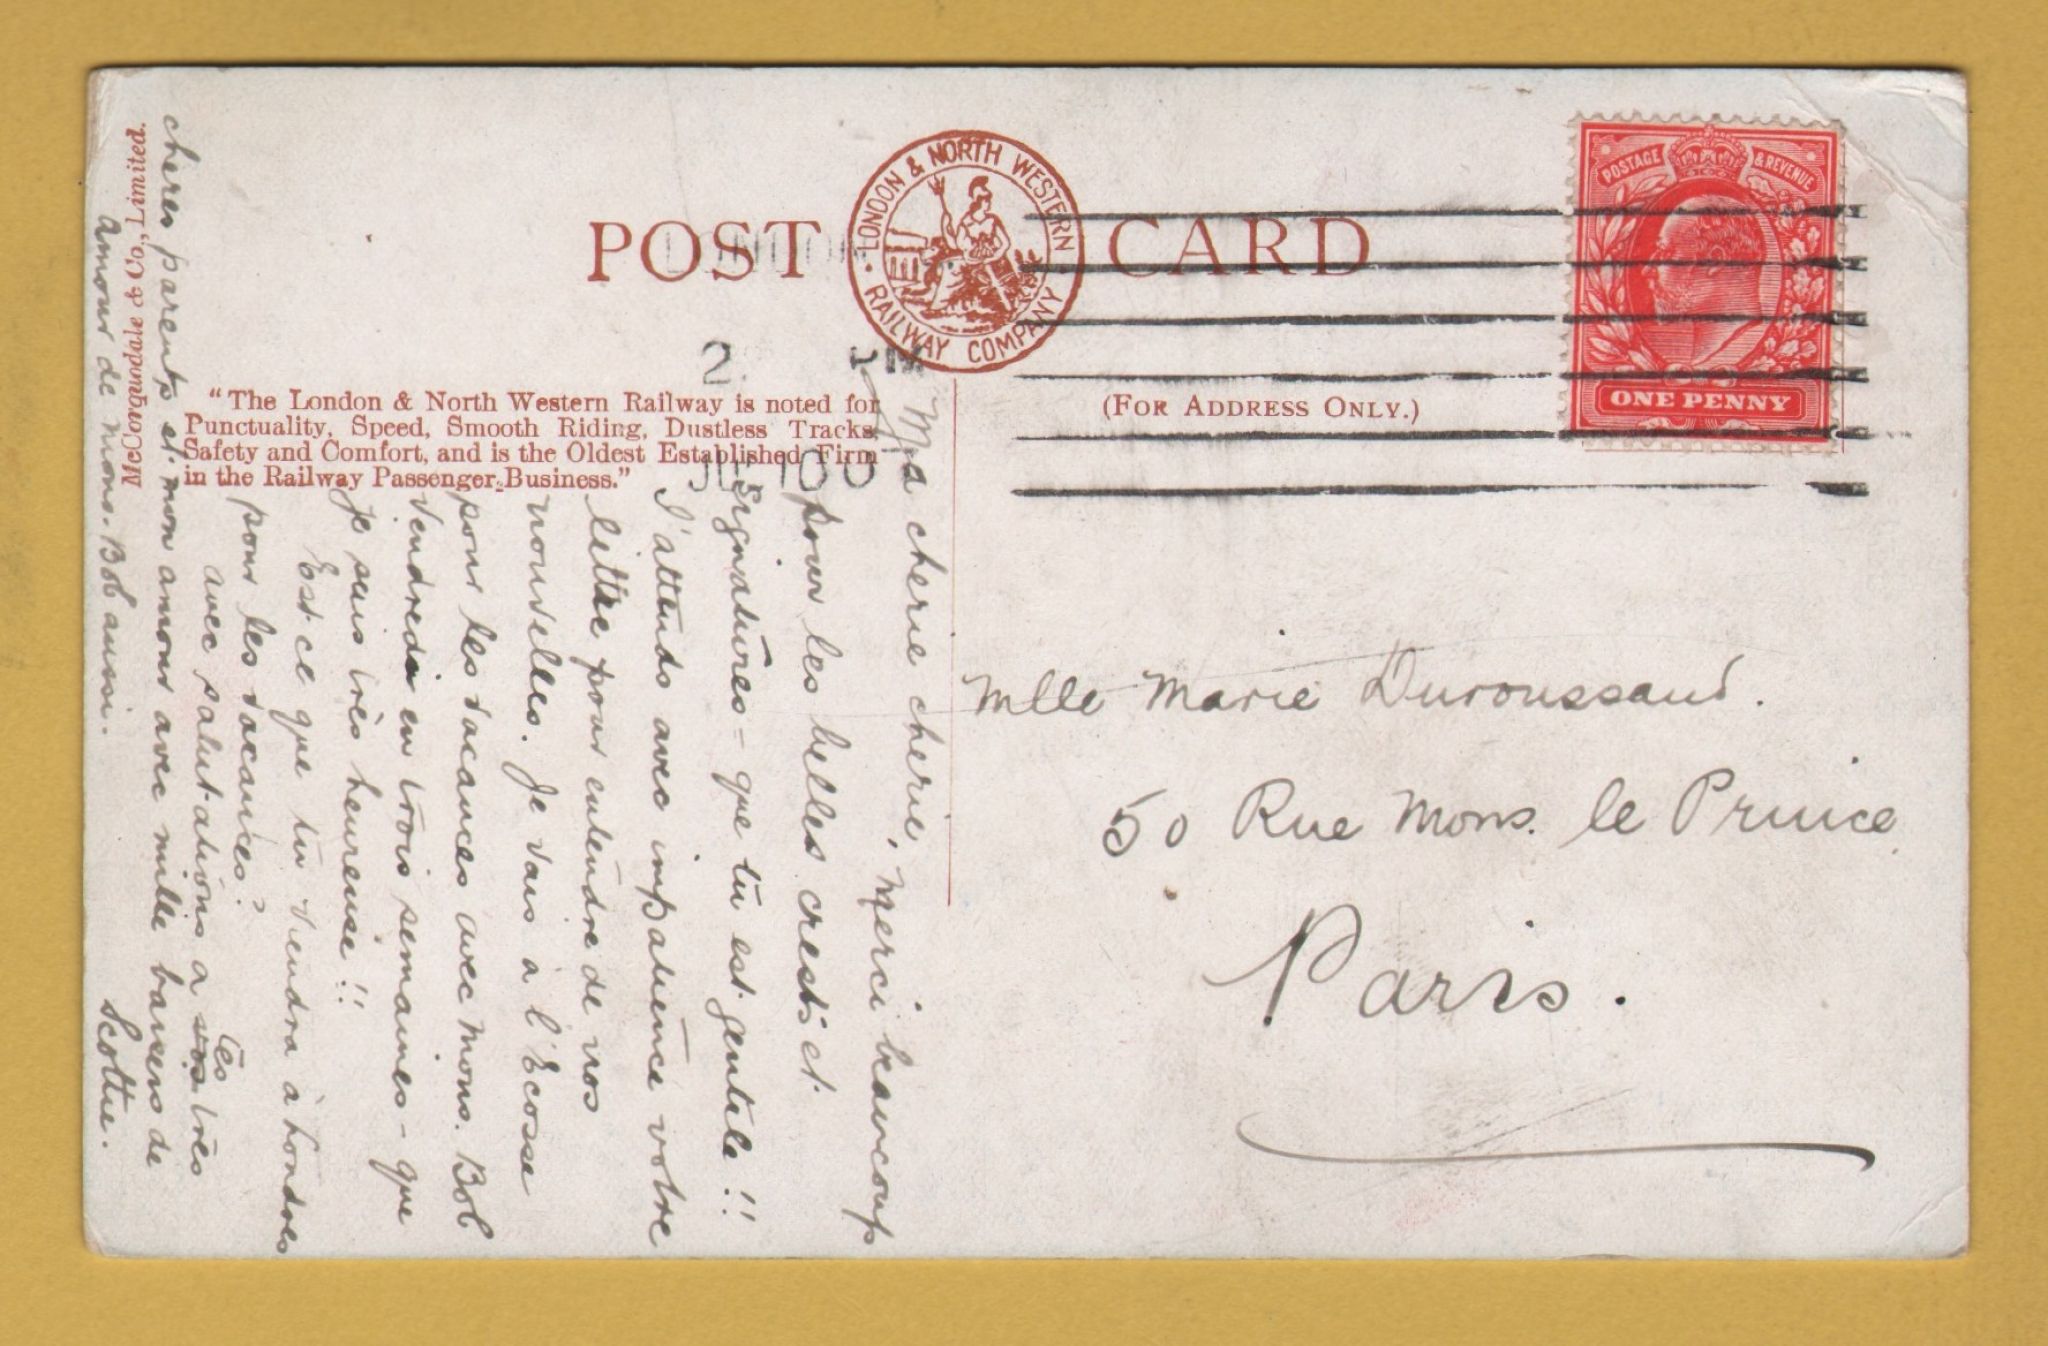 POST CARD
LONDON & NORTH WESTERN
RAILWAY COMPANY
POSTAGE & REVENUE
ONE PENNY
LONDON
2 PM
"The London & North Western Railway is noted for
Punctuality, Speed, Smooth Riding, Dustless Tracks
Safety and Comfort, and is the Oldest Established Firm
in the Railway Passenger Business."
(FOR ADDRESS ONLY.)
McCorquodale & Co., Limited.
Mlle Marie Duroussaud.
50 Rue Mons. le Prince
Paris.
Ma cherie cherie, Merci beaucoup
pour les belles crests et
signatures = que tu est gentile!!
J'attends avec impatience votre
lettre pour entendre de vos
nouvelles. Je vais à l'Ecosse
pour les vacances avec Mons. Bob
Vendredi en trois semaines - que
je suis très heureuse!!
Est ce que tu viendra à Londres
pour les vacances?
avec salutations a vos tes très
chères parents et mon amour avec mille baisers de
Scottie.
Amour de Mons. Bob aussi.